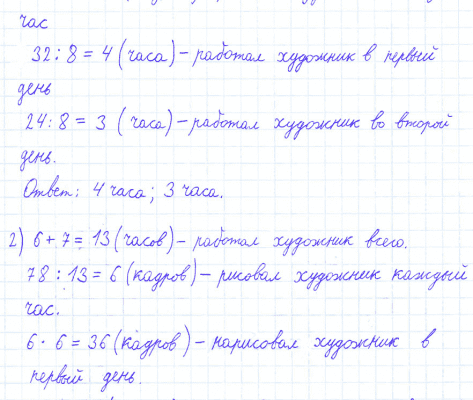 час
32 : 8 = 4 (часа) – работал художник в первый
день
24 : 8 = 3 (часа) – работал художник во второй
день.
Ответ: 4 часа; 3 часа.
2) 6 + 7 = 13 (часов) – работал художник всего.
78 : 13 = 6 (кадров) – рисовал художник каждый
час.
6 · 6 = 36 (кадров) – нарисовал художник в
первый день.